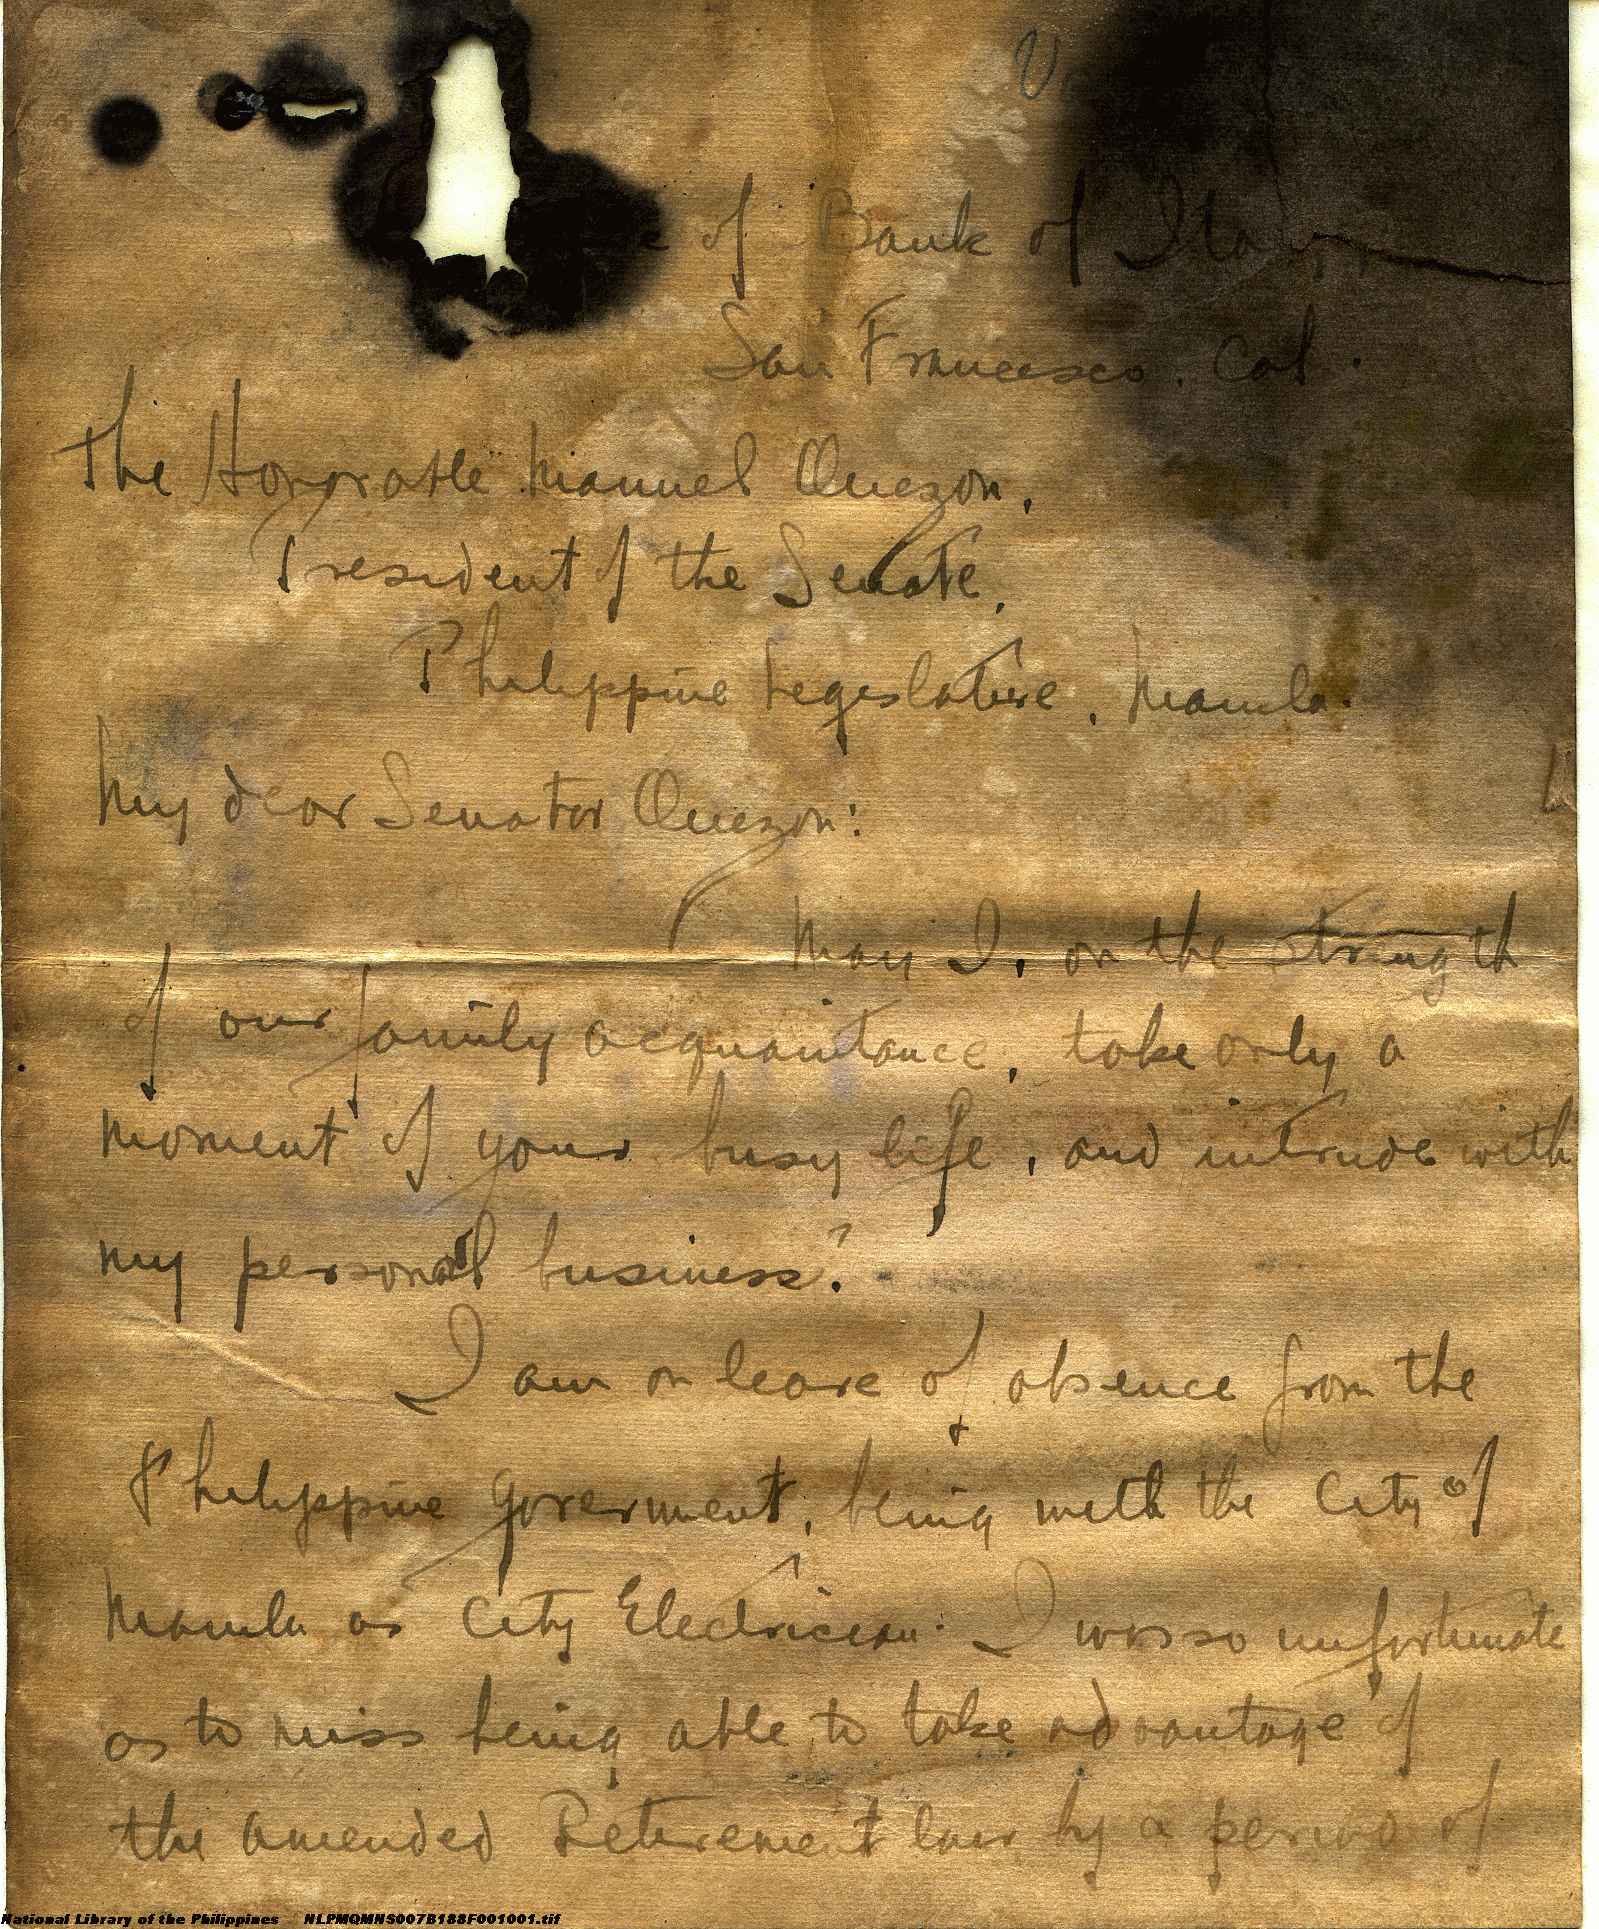 of Bank of Italy
San Francisco. Cal.
The Honorable Manuel Quezon,
President of the Senate,
Philippine Legislature, Manila.
My dear Senator Quezon:
May I, on the strength
of our family acquaintance, take only a
moment of your busy life, and intrude with
my personal business?
I am on leave of absence from the
Philippine Goverment, being with the City of
Manila as City Electrician. I was so unfortunate
as to miss being able to take advantage of
the amended Retirement law by a period of
National Library of the Philippines NLPMQMNS007B188F001001.tif